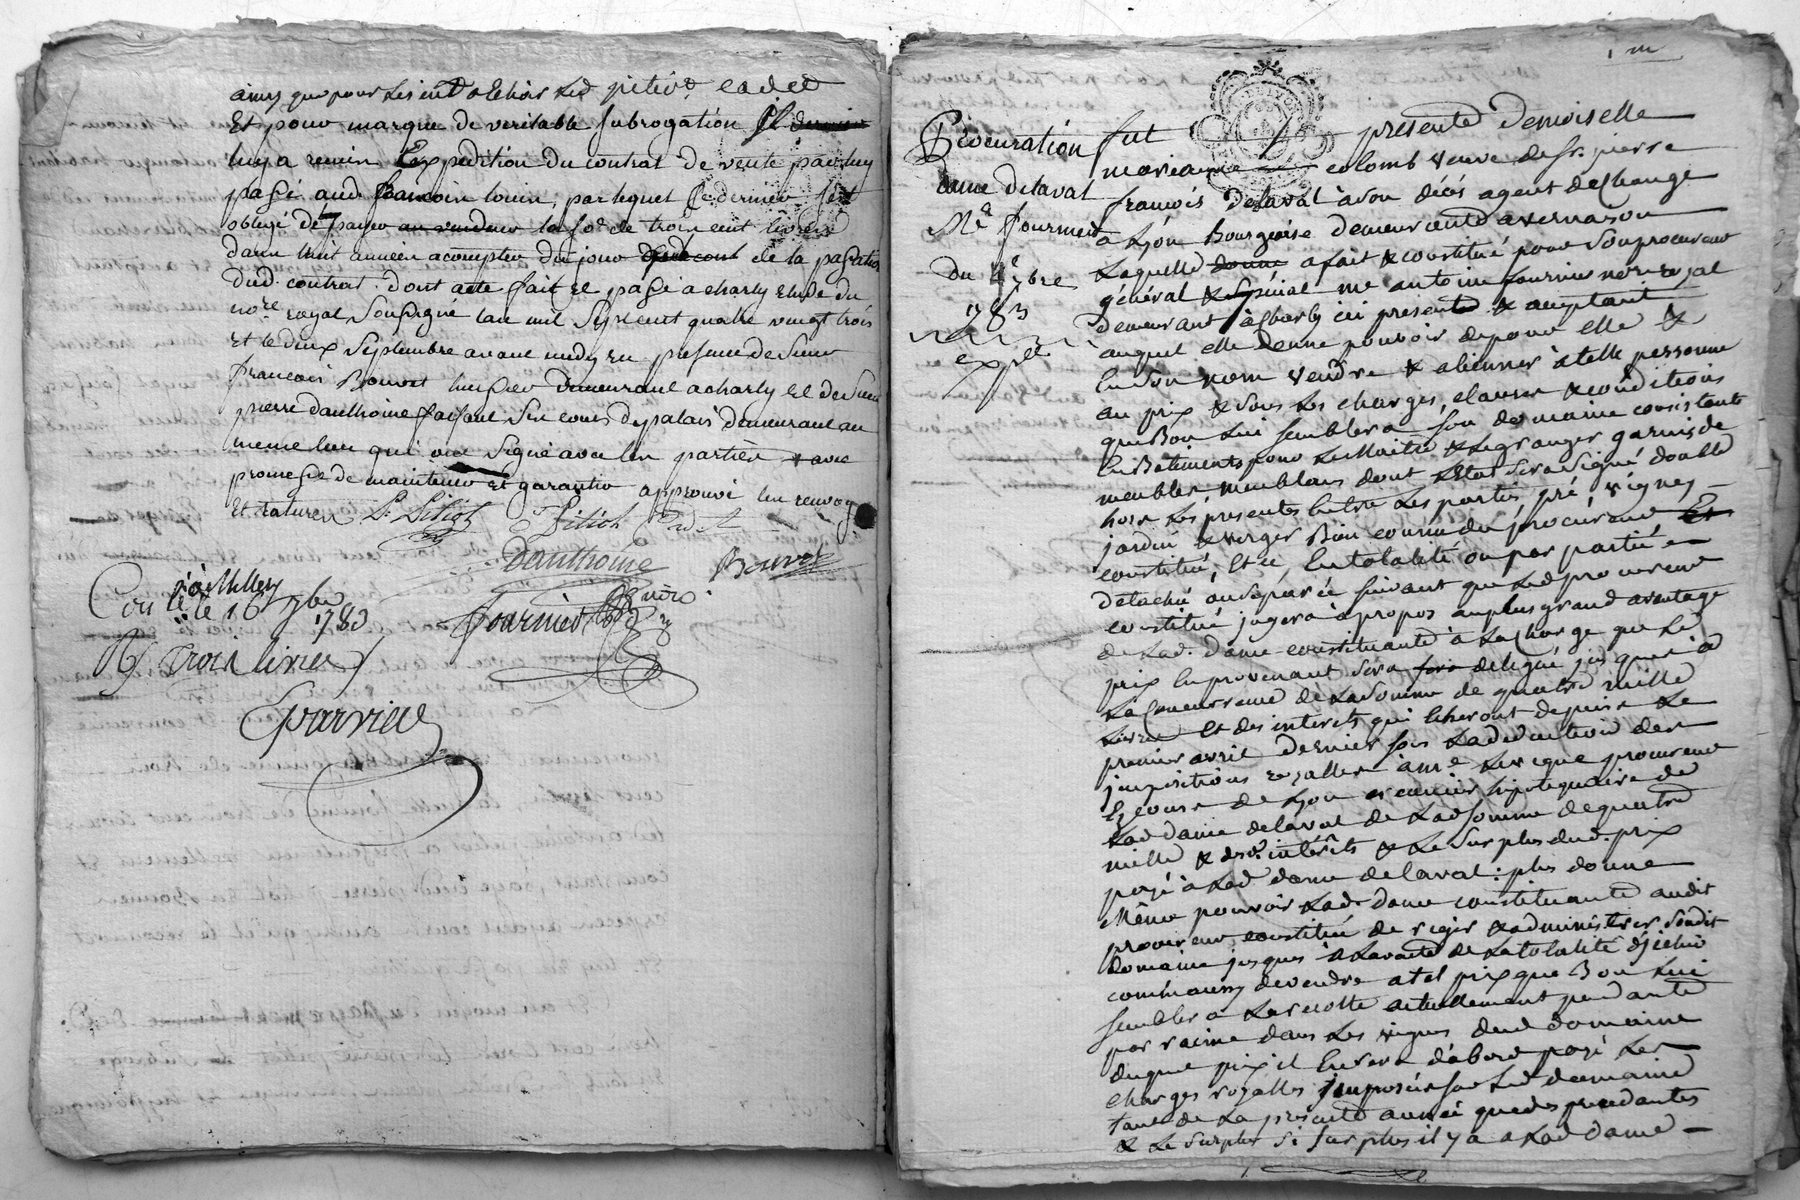 ainsy que pour les intherets led pitiot cadet
Et pour marque de veritable subrogation
luy a remin Expedition du contrat de vente par luy
passé aud françoin louin, par lequel ce dernier s'est
obligé de payer au vendeur la so.e de troin cent livres
dann huit annéen acompter du jour de la passation
dud. contrat. Dont acte fait et passé a charly etude du
no.re royal soussigné lan mil sept cent quatre vingt trois
et le deux septembre avant midy en presence de sieur
françois Bouvet huissier demeurant a charly et de sieur
pierre danthoine faisant ses cours de palais demeurant au
meme lieu qui ont signé avec les partien avec
promesse de maintenir et garantir approuvé les renvoy
et raturen
Danthoine Bouvet
Con.lé à Millery
le 16 7bre 1783
Fournier no.re
R/ troin livres
Eparvier
Procuration
dame delaval
M.e fournier
du 4 7bre
1783
expé.
fut presente demoiselle
marianne colomb veuve de sr. pierre
françois delaval à son décés agent de change
à Lyon Bourgeoise demeurante a vernaison
Laquelle donne a fait & constitué pour son procureur
général & spécial me antoine fournier no.re royal
demeurant à Charly ici present & acceptant
auquel elle donne pouvoir de pour elle &
en son nom vendre & alienner à telle personne
au prix & sous les charges, clauses & conditions
que Bon lui semblera son domaine consistant
en Batiments pour le Maitre & le granger garnis de
meubles meublans dont l'Etat sera signé double
hors les presentes entre les parties, pré, vignes
jardin & verger Bien connu du procureur Et
constitué, Et ce, en totalité ou par partie
detaché ou séparée suivant que led procureur
constitué jugera à propos au plus grand avantage
de lad. dame constituante à la charge que le
prix en provenant sera delegué jusques à
la concurrence de la somme de quatre mille
livres Et des interets qui echeront depuis le
premier avril dernier sous la deduction des
impositions royalles à me procureur
Es cours de Lyon creancier hipotequaire de
lad dame delaval de lad somme de quatre
mille & desd. intérêts & le surplus dud. prix
payé à lad dame delaval: plus donne
Même pouvoir lad. dame constituante audit
procureur constitué de regir & administrer sondit
domaine jusques à la vente de la totalité d'jcelui
comm'aussy de vendre a tel prix que Bon lui
semblera la recolte actuellement pendante
par racine dans les vignes dud domaine
duquel prix il en sera d'abord payé les
charges royalles jmposées sur led domaine
tant de la presente année que des precedantes
& le surplus si surplus il y a a lad dame